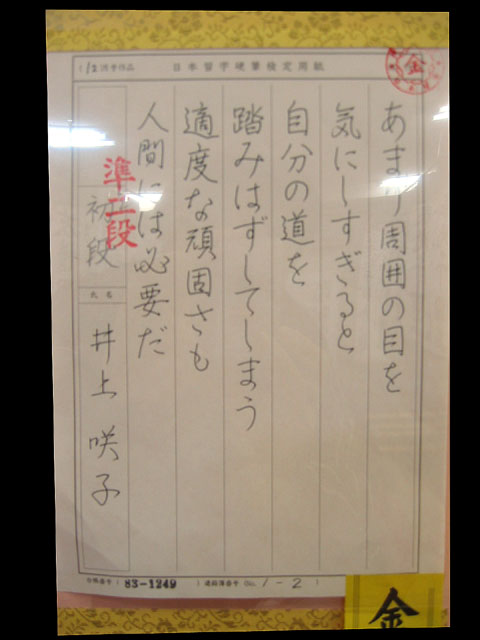 日本習字硬筆検定用紙
金
あまり周囲の目を
気にしすぎると
自分の道を
踏みはずしてしまう
適度な頑固さも
人間には必要だ
準二段
初段
氏名
井上咲子
83-1249
1-2
金